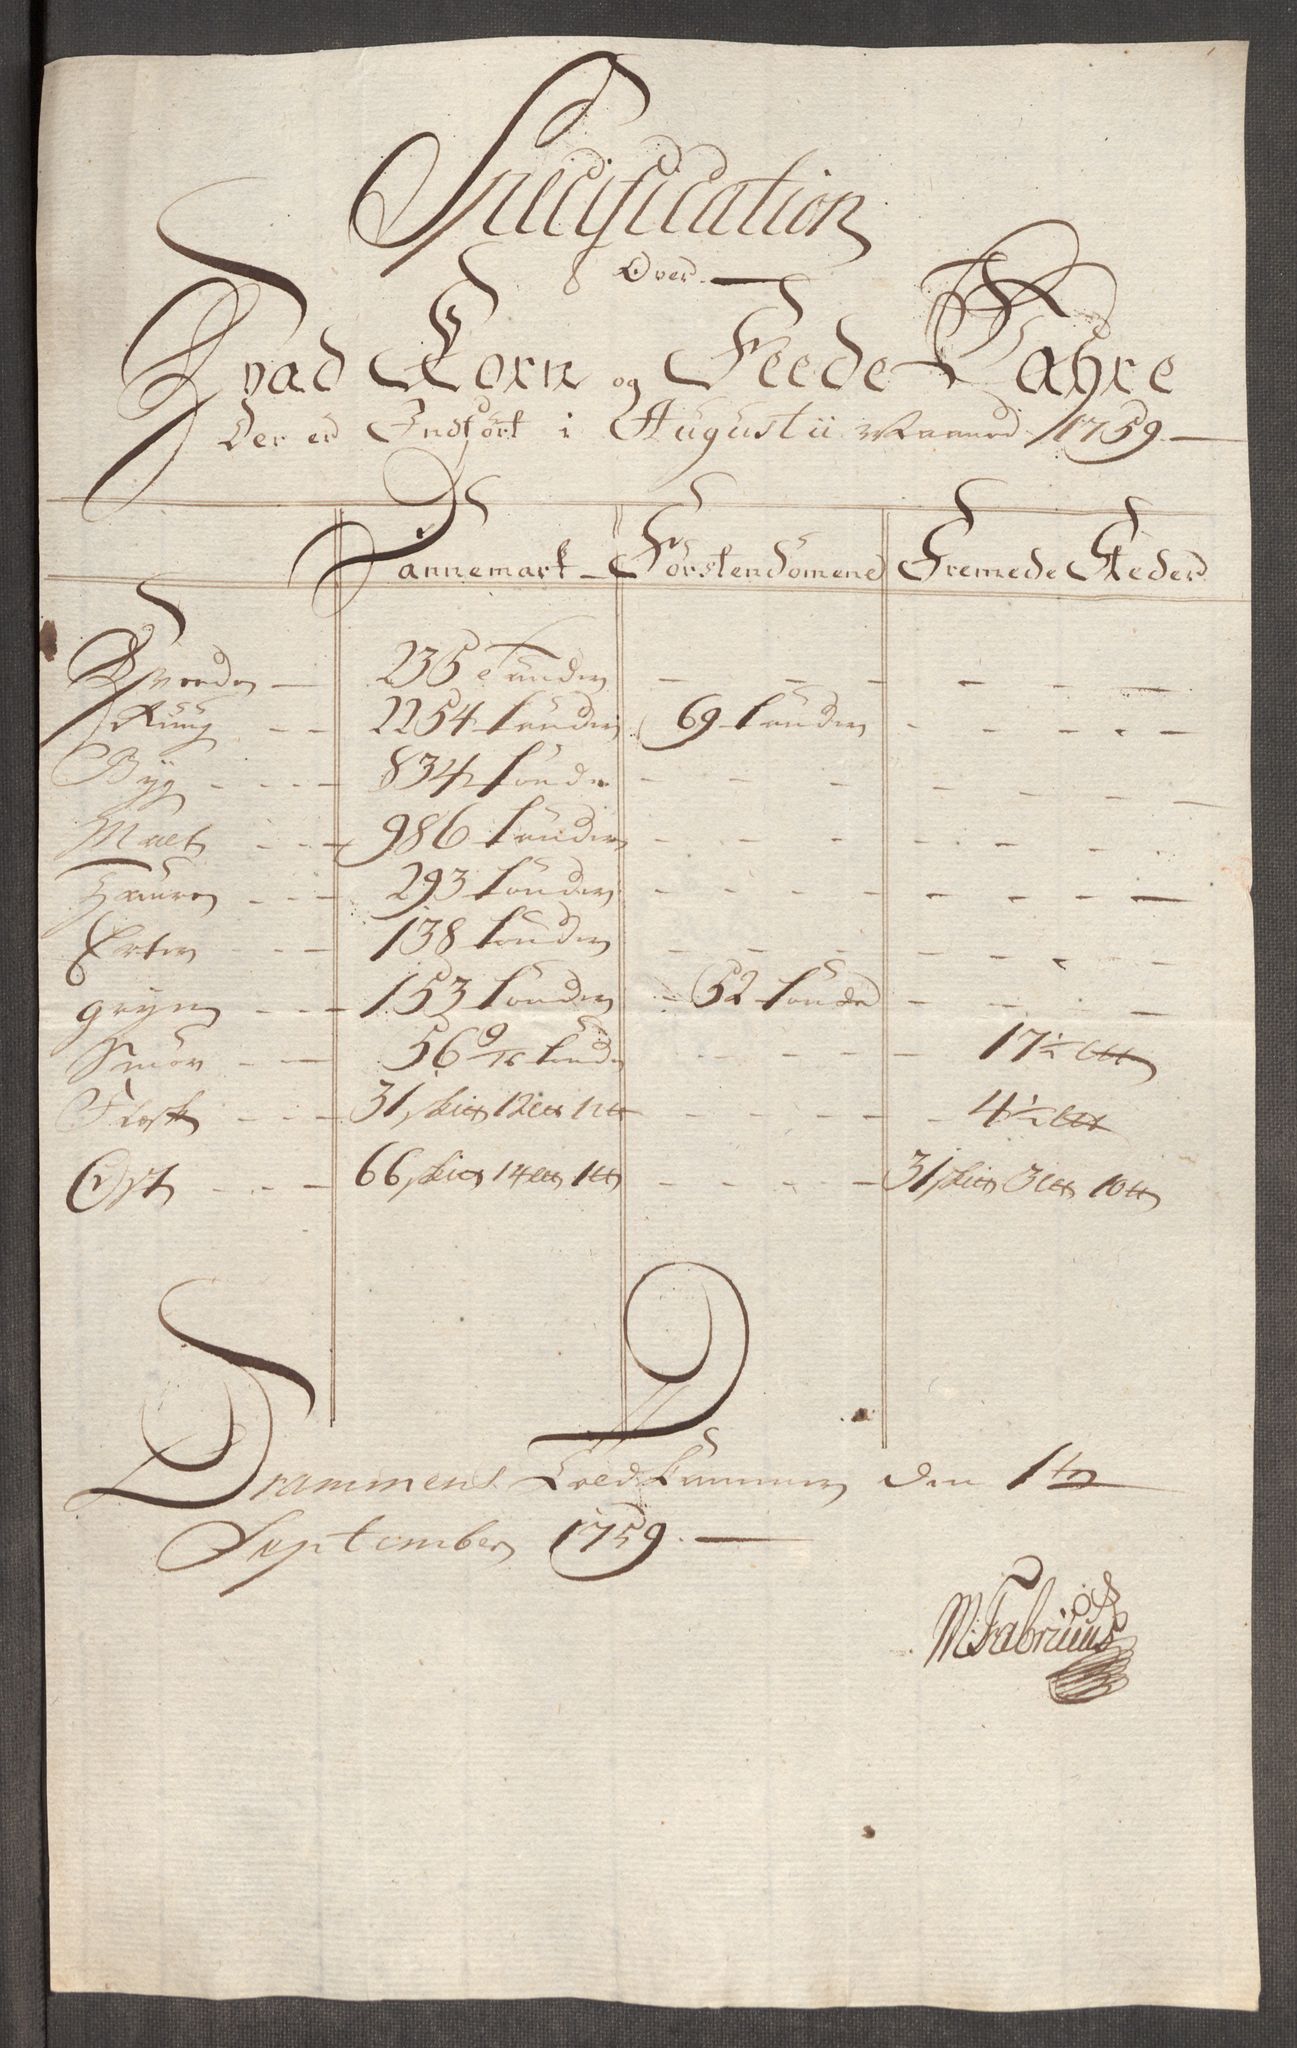 Specification
Over
Hvad Korn og Feede Vahre
Der er Indført i Augustii Maaned 1759.
Dannemark Förstendomene Fremede Steder
Hveede 235 Tønder
Rüüg 2254 tönder 69 tönder
Býg 834 tönder
Malt 986 tönder
Haure 293 tönder
Erter 138 tönder
gryn 153 tönder 52 tönder
Smör 56 9/16 tönde 17½ L℔
Flesk 31 sk℔ 12 L℔ 1 ℔ 4½ L℔
Ost 66 sk℔ 14 L℔ 1 ℔ 31 sk℔ 3 L℔ 10 ℔
Drammens Told Kammer den 1te
September 1759.
M: Fabricius